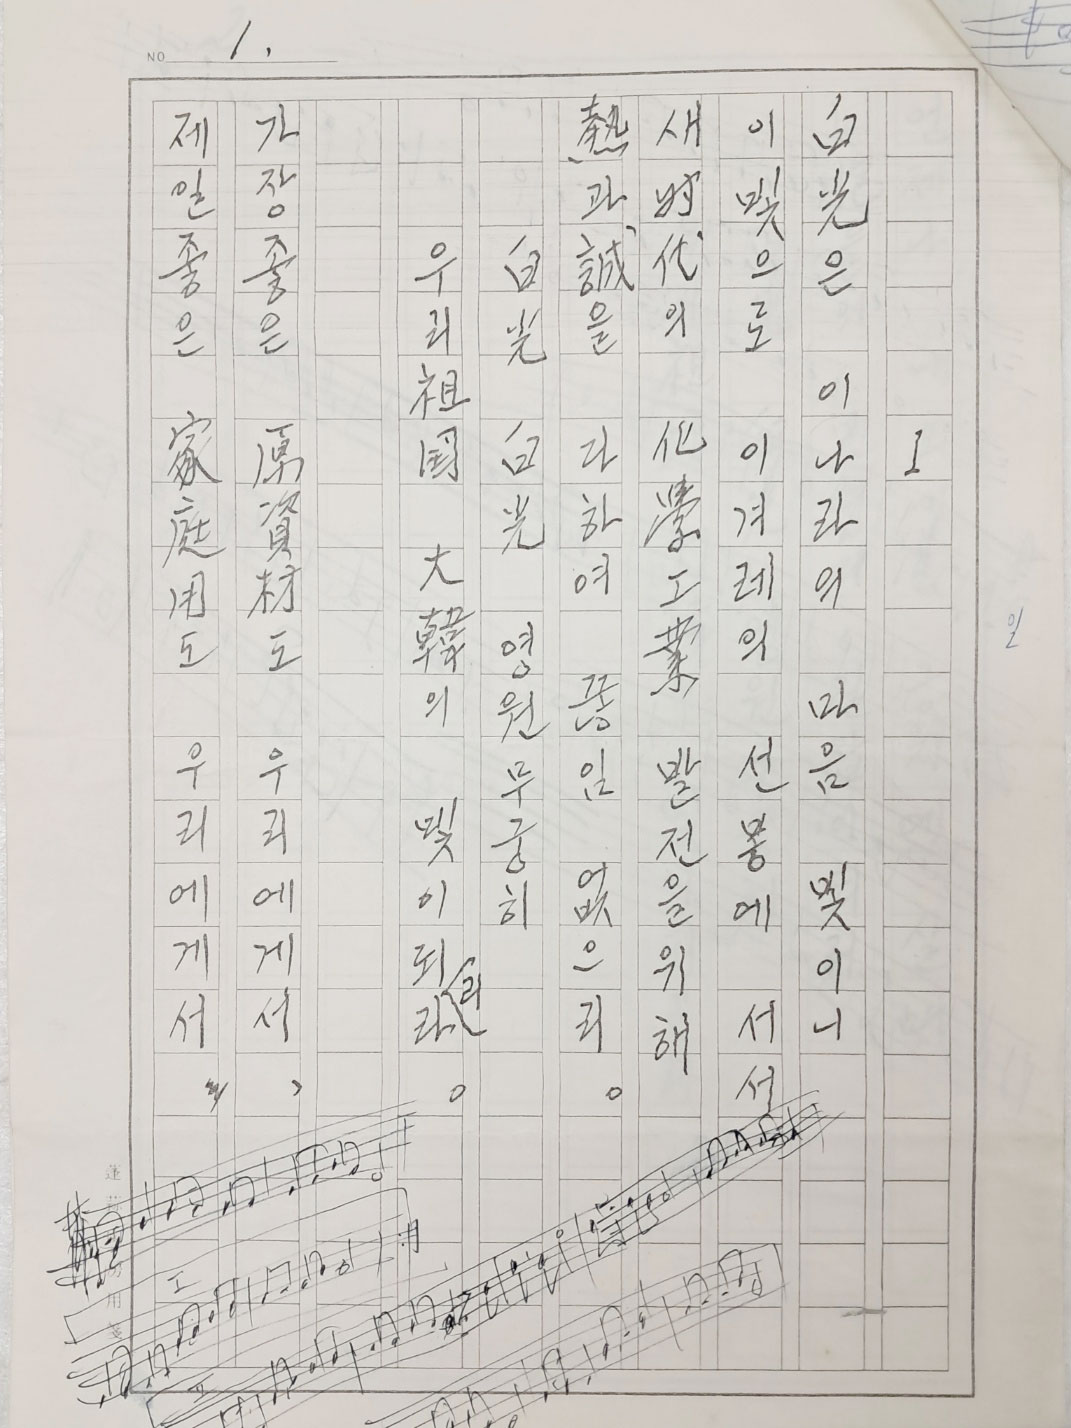 NO 1.
I
白光은 이나라의 마음 빛이니
이빛으로 이겨레의 선봉에 서서
새時代의 化學工業 발전을위해
熱과誠을 다하여 끊임 없으리。
白光 白光 영원무궁히
우리祖国 大韓의 빛이되라。
리
가장좋은 原資材도 우리에게서、
제일좋은 家庭用도 우리에게서
일
I